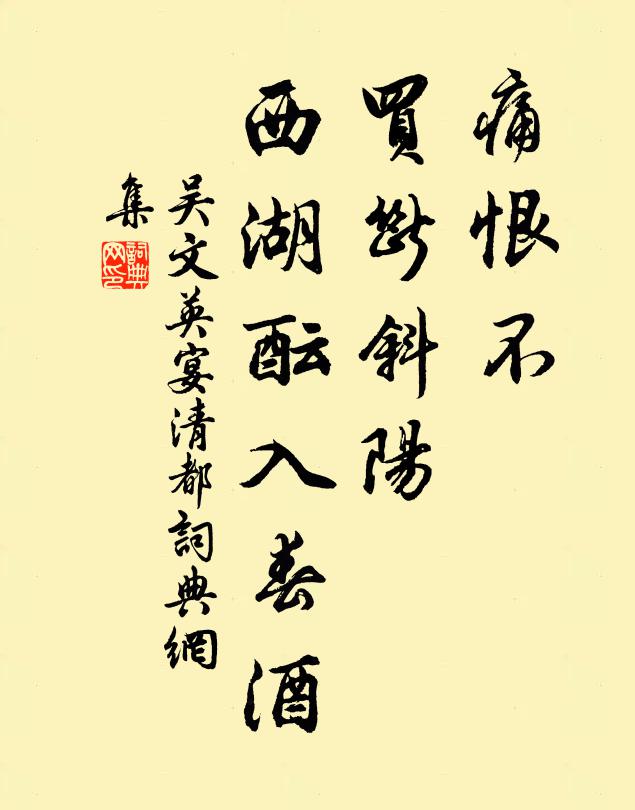 痛恨不
買斷斜陽
西湖酝入春酒
吴文英宴清都詞典網
集
詞典
网印